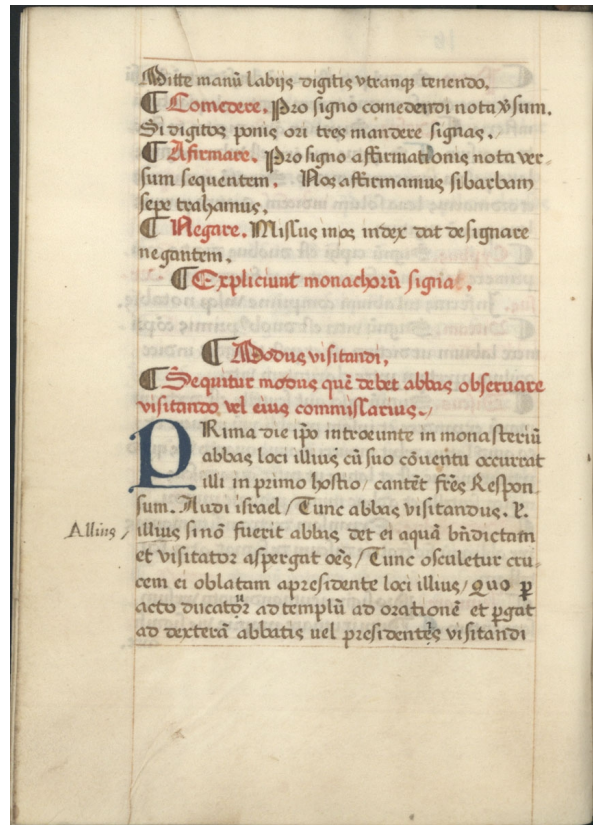 Mitte manū labijs digitis vtranq tenendo.
¶ Comedere. Pro signo comedendi nota v̄sum.
Si digitos ponis ori tres mandere signas.
¶ Afirmare. Pro signo affirmationis nota ver-
sum sequentem. Nos affirmamus si barbam
sepe trahamus.
¶ Negare. Missus in os index dat designare
negantem.
¶ Expliciunt monachorū signa.
¶ Modus visitandi.
¶ Sequitur modus quē debet abbas obseruare
visitando vel eius commissarius./
PRima die ip̄o introeunte in monasteriū
abbas loci illius cū suo cōuentu occurrat
illi in primo hostio/ cantēt frēs Respon-
sum. Audi israel/ Tunc abbas visitandus. p.
Allius / illius sinō fuerit abbas det ei aquā bn̄dictam
et visitator aspergat oēs/ Tunc osculetur cru-
cem ei oblatam apresidente loci illius/ Quo ꝑ
acto ducatur ad templū ad orationē et ꝑgat
ad dexterā abbatis uel presidentis visitandi